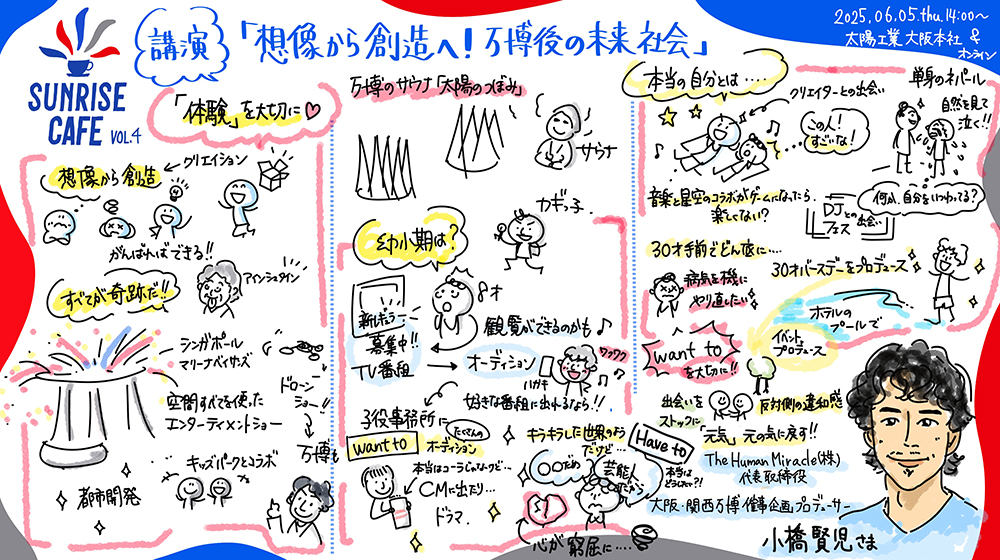 SUNRISE
CAFE VOL.4
講演
「想像から創造へ！万博後の未来社会」
2025.06.05.thu.14:00〜
太陽工業 大阪本社 &
オンライン
「体験」を大切に
想像から創造
クリエイション
がんばればできる!!
すべてが奇跡だ!!
アインシュタイン
シンガポール
マリーナベイサンズ
空間すべてを使った
エンターティメントショー
ドローン
ショー!!
万博も
キッズパークとコラボ
都市開発
万博のサウナ「太陽のつぼみ」
サウナ
幼少期は？
カギっ子
8才
新レギュラー
募集中!!
TV番組
観覧ができるのかも
オーディション
ハガキ
ワクワク
好きな番組に出れるなら!!
子役事務所に
want to
たくさんの
オーディション
本当はコーラじゃないけど…
CMに出たり…
ドラマ.
キラキラした世界のよう
だけど…
Have to
〇〇だめ
芸能人
だから
本当は
どうしたい?!
心が窮屈に….
本当の自分とは….
クリエイターとの出会い
この人！
すごいな！
音楽と星空のコラボがゲームになったら
楽しくない？
DJとの
フェス 出会い
単身のネパール
自然を見て
泣く!!
何か、自分をいつわってる？
30才手前でどん底に….
病気を機に
やり直したい
30才バースデーをプロデュース
ホテルの
プールで
イベント
プロデュース
want to
を大切に!!
出会いを
ストックに
反対側の違和感
「元気」元の気に戻す!!
The Human Miracle(株)
代表取締役
大阪・関西万博 催事企画プロデューサー
小橋賢児さま